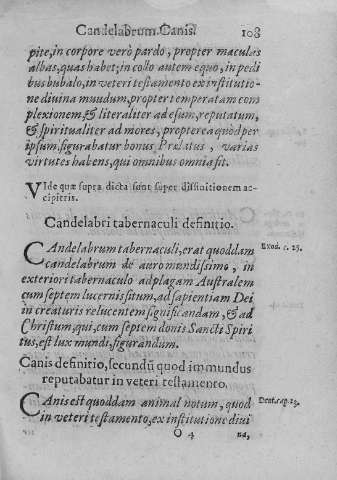 Candelabrum. Canis. 108
pite, in corpore verò pardo, propter maculas
albas, quas habet; in collo autem equo, in pedi
bus bubalo, in veteri testamento ex institutio-
ne diuina mundum, propter temperatam com
plexionem, & literaliter ad esum, reputatum,
& spiritualiter ad mores, propterea quod per
ipsum, figurabatur bonus Prælatus, varias
virtutes habens, qui omnibus omnia sit.
VIde quæ supra dicta sunt super diffinitionem ac-
cipitris.
Candelabri tabernaculi definitio.
CAndelabrum tabernaculi, erat quoddam
Exod. c. 25.
candelabrum de auro mundissimo, in
exteriori tabernaculo ad plagam Australem
cum septem lucernis situm, ad sapientiam Dei
in creaturis relucentem significandam, & ad
Christum, qui, cum septem donis Sancti Spiri
tus, est lux mundi, figurandum.
Canis definitio, secundũ quod immundus
reputabatur in veteri testamento.
CAnis est quoddam animal notum, quod
Deut. cap. 23.
in veteri testamento, ex institutione diui
O 4
na,